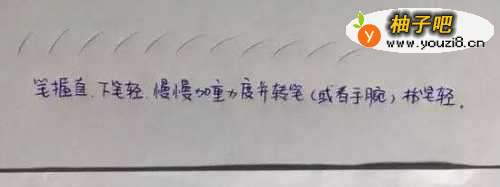 柚子吧
www.youzi8.cn
笔握直、下笔轻、慢慢加重力度并转笔(或者手腕)抬笔轻。